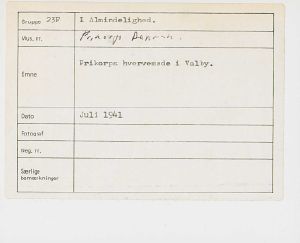 Gruppe 23P I Almindelighed.
Mus. nr.
Emne Frikorps hvervemøde i Valby.
Dato Juli 1941
Fotograf
Neg. nr.
Særlige
bemærkninger